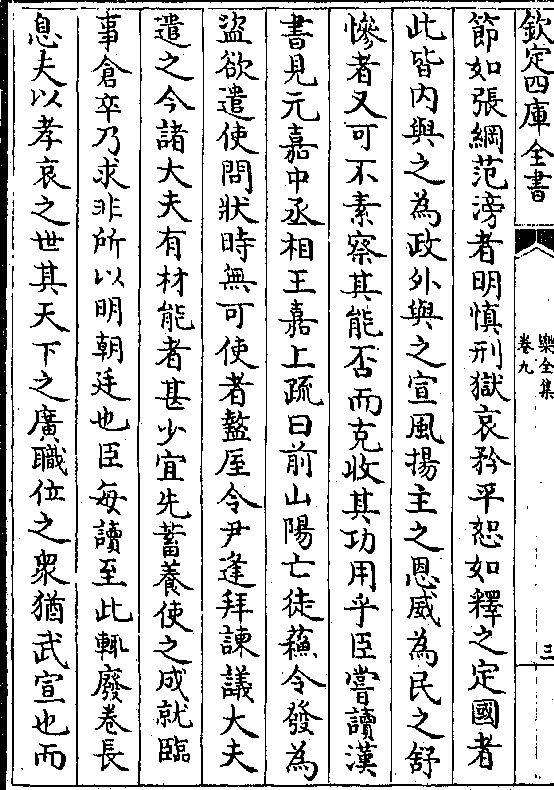 欽定四庫全書
樂全集
卷九
三
節如張綱范滂者明慎刑獄哀矜平恕如釋之定國者
此皆内與之為政外與之宣風揚主之恩威為民之舒
慘者又可不素察其能否而克收其功用乎臣嘗讀漢
書見元嘉中丞相王嘉上疏曰前山陽亡徒蘇令發為
盜欲遣使問狀時無可使者盩厔令尹逢拜諫議大夫
遣之今諸大夫有材能者甚少宜先蓄養使之成就臨
事倉卒乃求非所以明朝廷也臣每讀至此輒廢卷長
息夫以孝哀之世其天下之廣職位之衆猶武宣也而